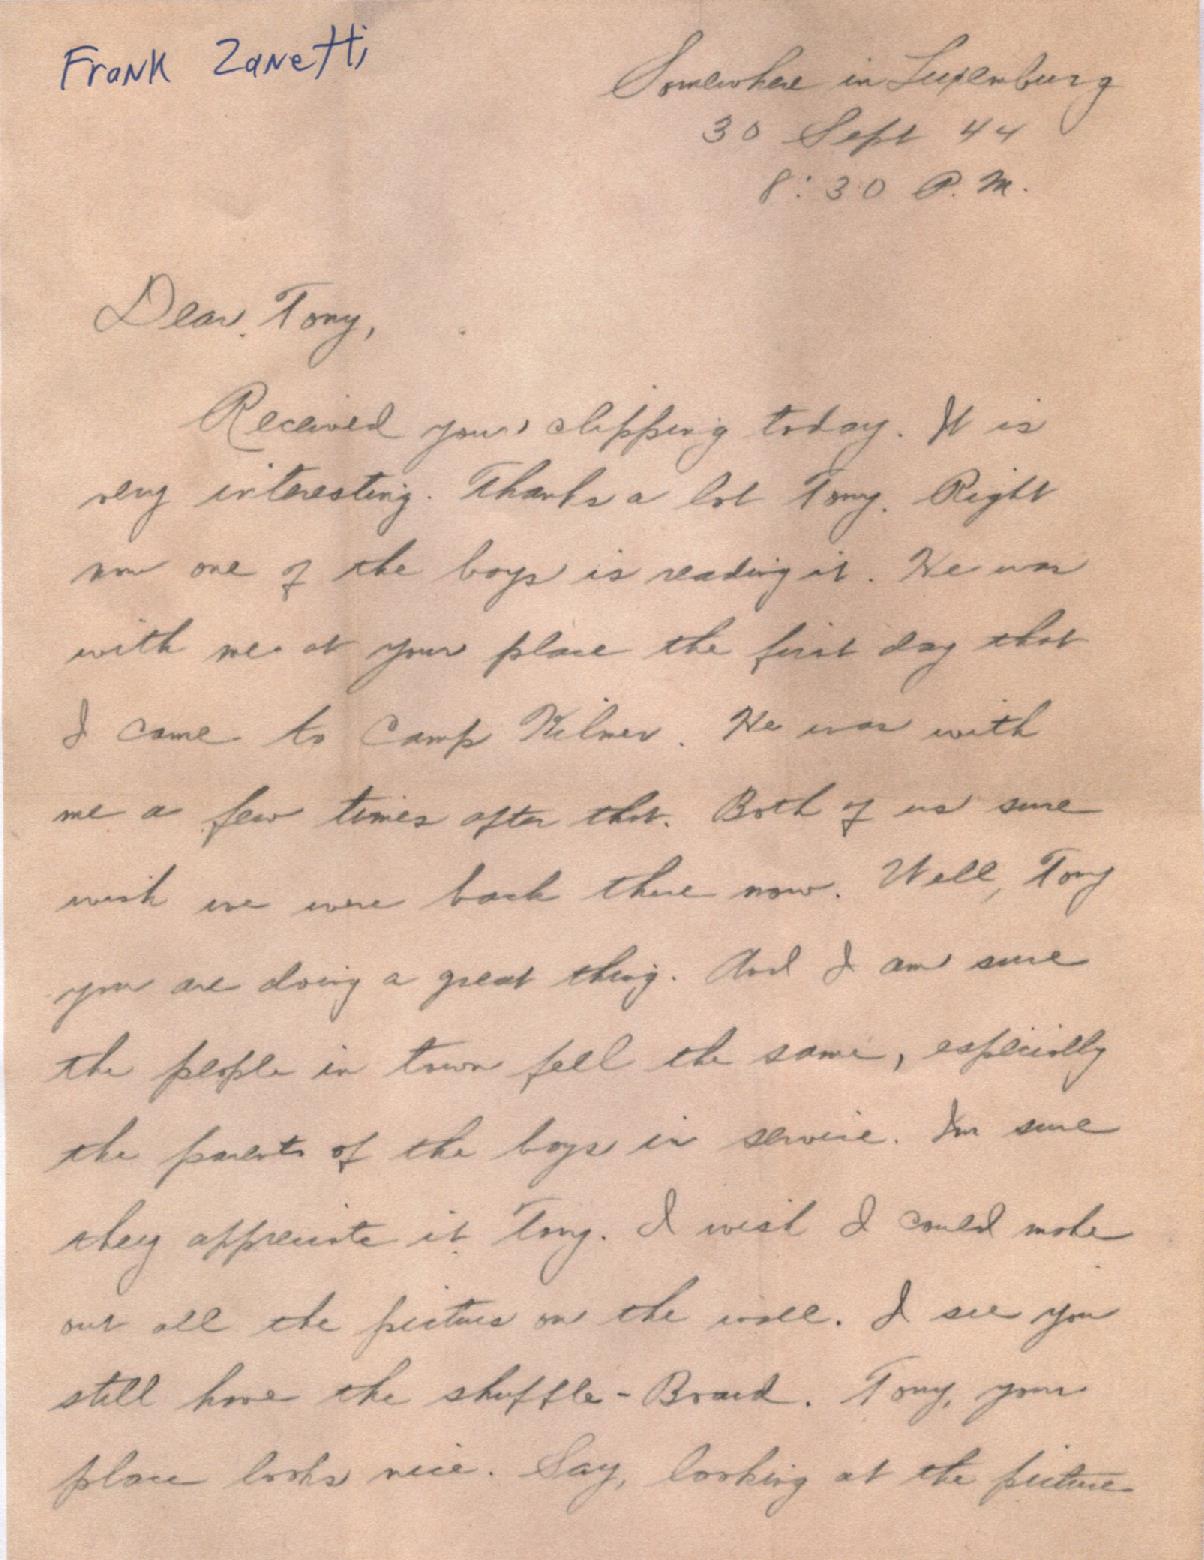 Frank Zanetti
Somewhere in Luxemburg
30 Sept 44
8:30 P.M.
Dear Tony,
Received your clipping today. It is
very interesting. Thanks a lot Tony. Right
now one of the boys is reading it. He was
with me at your place the first day that
I came to Camp Kilmer. He was with
me a few times after that. Both of us sure
wish we were back there now. Well, Tony
you are doing a great thing. And I am sure
the people in town fell the same, especially
the parents of the boys in service. Im sure
they appreciate it Tony. I wish I could make
out all the pictures on the wall. I see you
still have the shuffle-Board. Tony, your
place looks nice. Say, looking at the picture